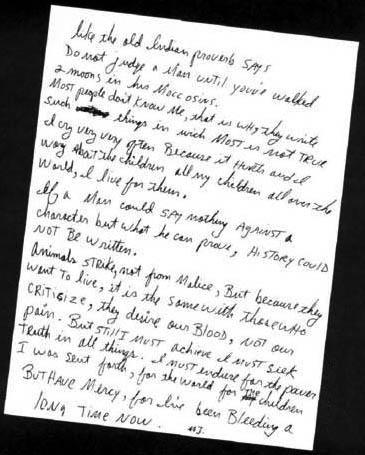 like the old Indian proverb SAYS
Do not judge a Man until you've walked
2 moons in his Moccosins.
Most people don't know me, that is why they write
such things in wich Most is not TRUE
I cry very very often Because it Hurts and I
worry about the children all my children all over the
World, I live for them.
If a Man could SAY nothing AGAINST a
character but what he can prove, HISTORY COULD
NOT BE WRITTEN.
Animals STRIKE, not from Malice, But because they
want To live, it is the same with those who
CRITISIZE, they desire our BLOOD, NOT our
pain. But STILL I MUST achieve I MUST seek
Truth in all things. I must endure for the power
I was sent forth, for the world for the children
BUT HAVE Mercy, for I've been Bleeding a
long TIME NOW.
MJ.